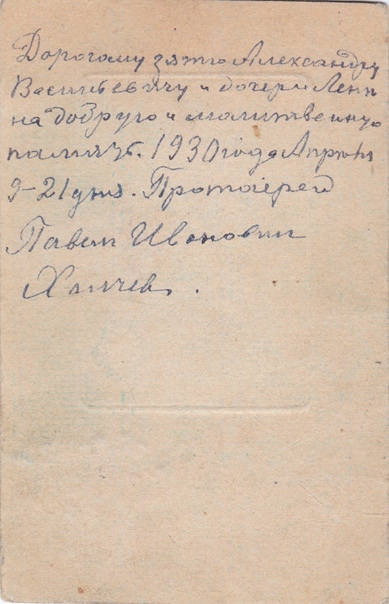 Дорогому зятю Александру
Васильевичу и дочери Лени
на добрую и молитвенную
память. 1930 года Апреля
9-21 дня. Протоиерей
Павел Иванович